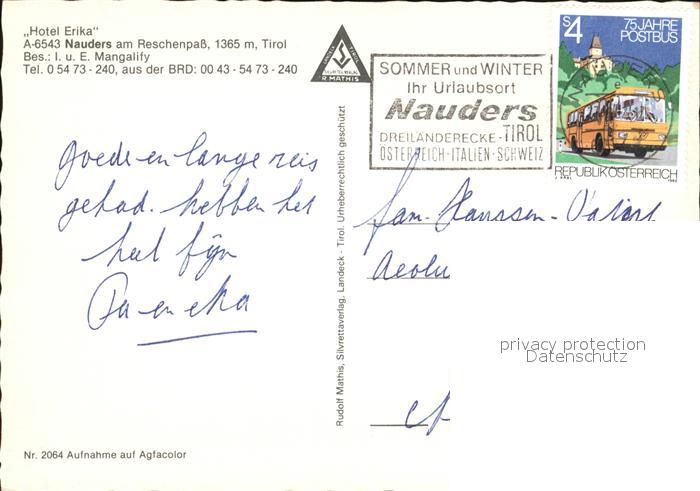 „Hotel Erika"
A-6543 Nauders am Reschenpaß, 1365 m, Tirol
Bes.: I. u. E. Mangalify
Tel. 0 54 73 - 240, aus der BRD: 00 43 - 54 73 - 240
R. MATHIS
SOMMER und WINTER
Ihr Urlaubsort
Nauders
DREILÄNDERECKE - TIROL
ÖSTERREICH - ITALIEN - SCHWEIZ
S4
75 JAHRE
POSTBUS
REPUBLIK ÖSTERREICH
goede en lange reis
gehad. hebben het
heel fijn
Pa en
Rudolf Mathis, Silvrettaverlag, Landeck - Tirol. Urheberrechtlich geschützt
fam.
Aeolu
privacy protection
Datenschutz
Nr. 2064 Aufnahme auf Agfacolor